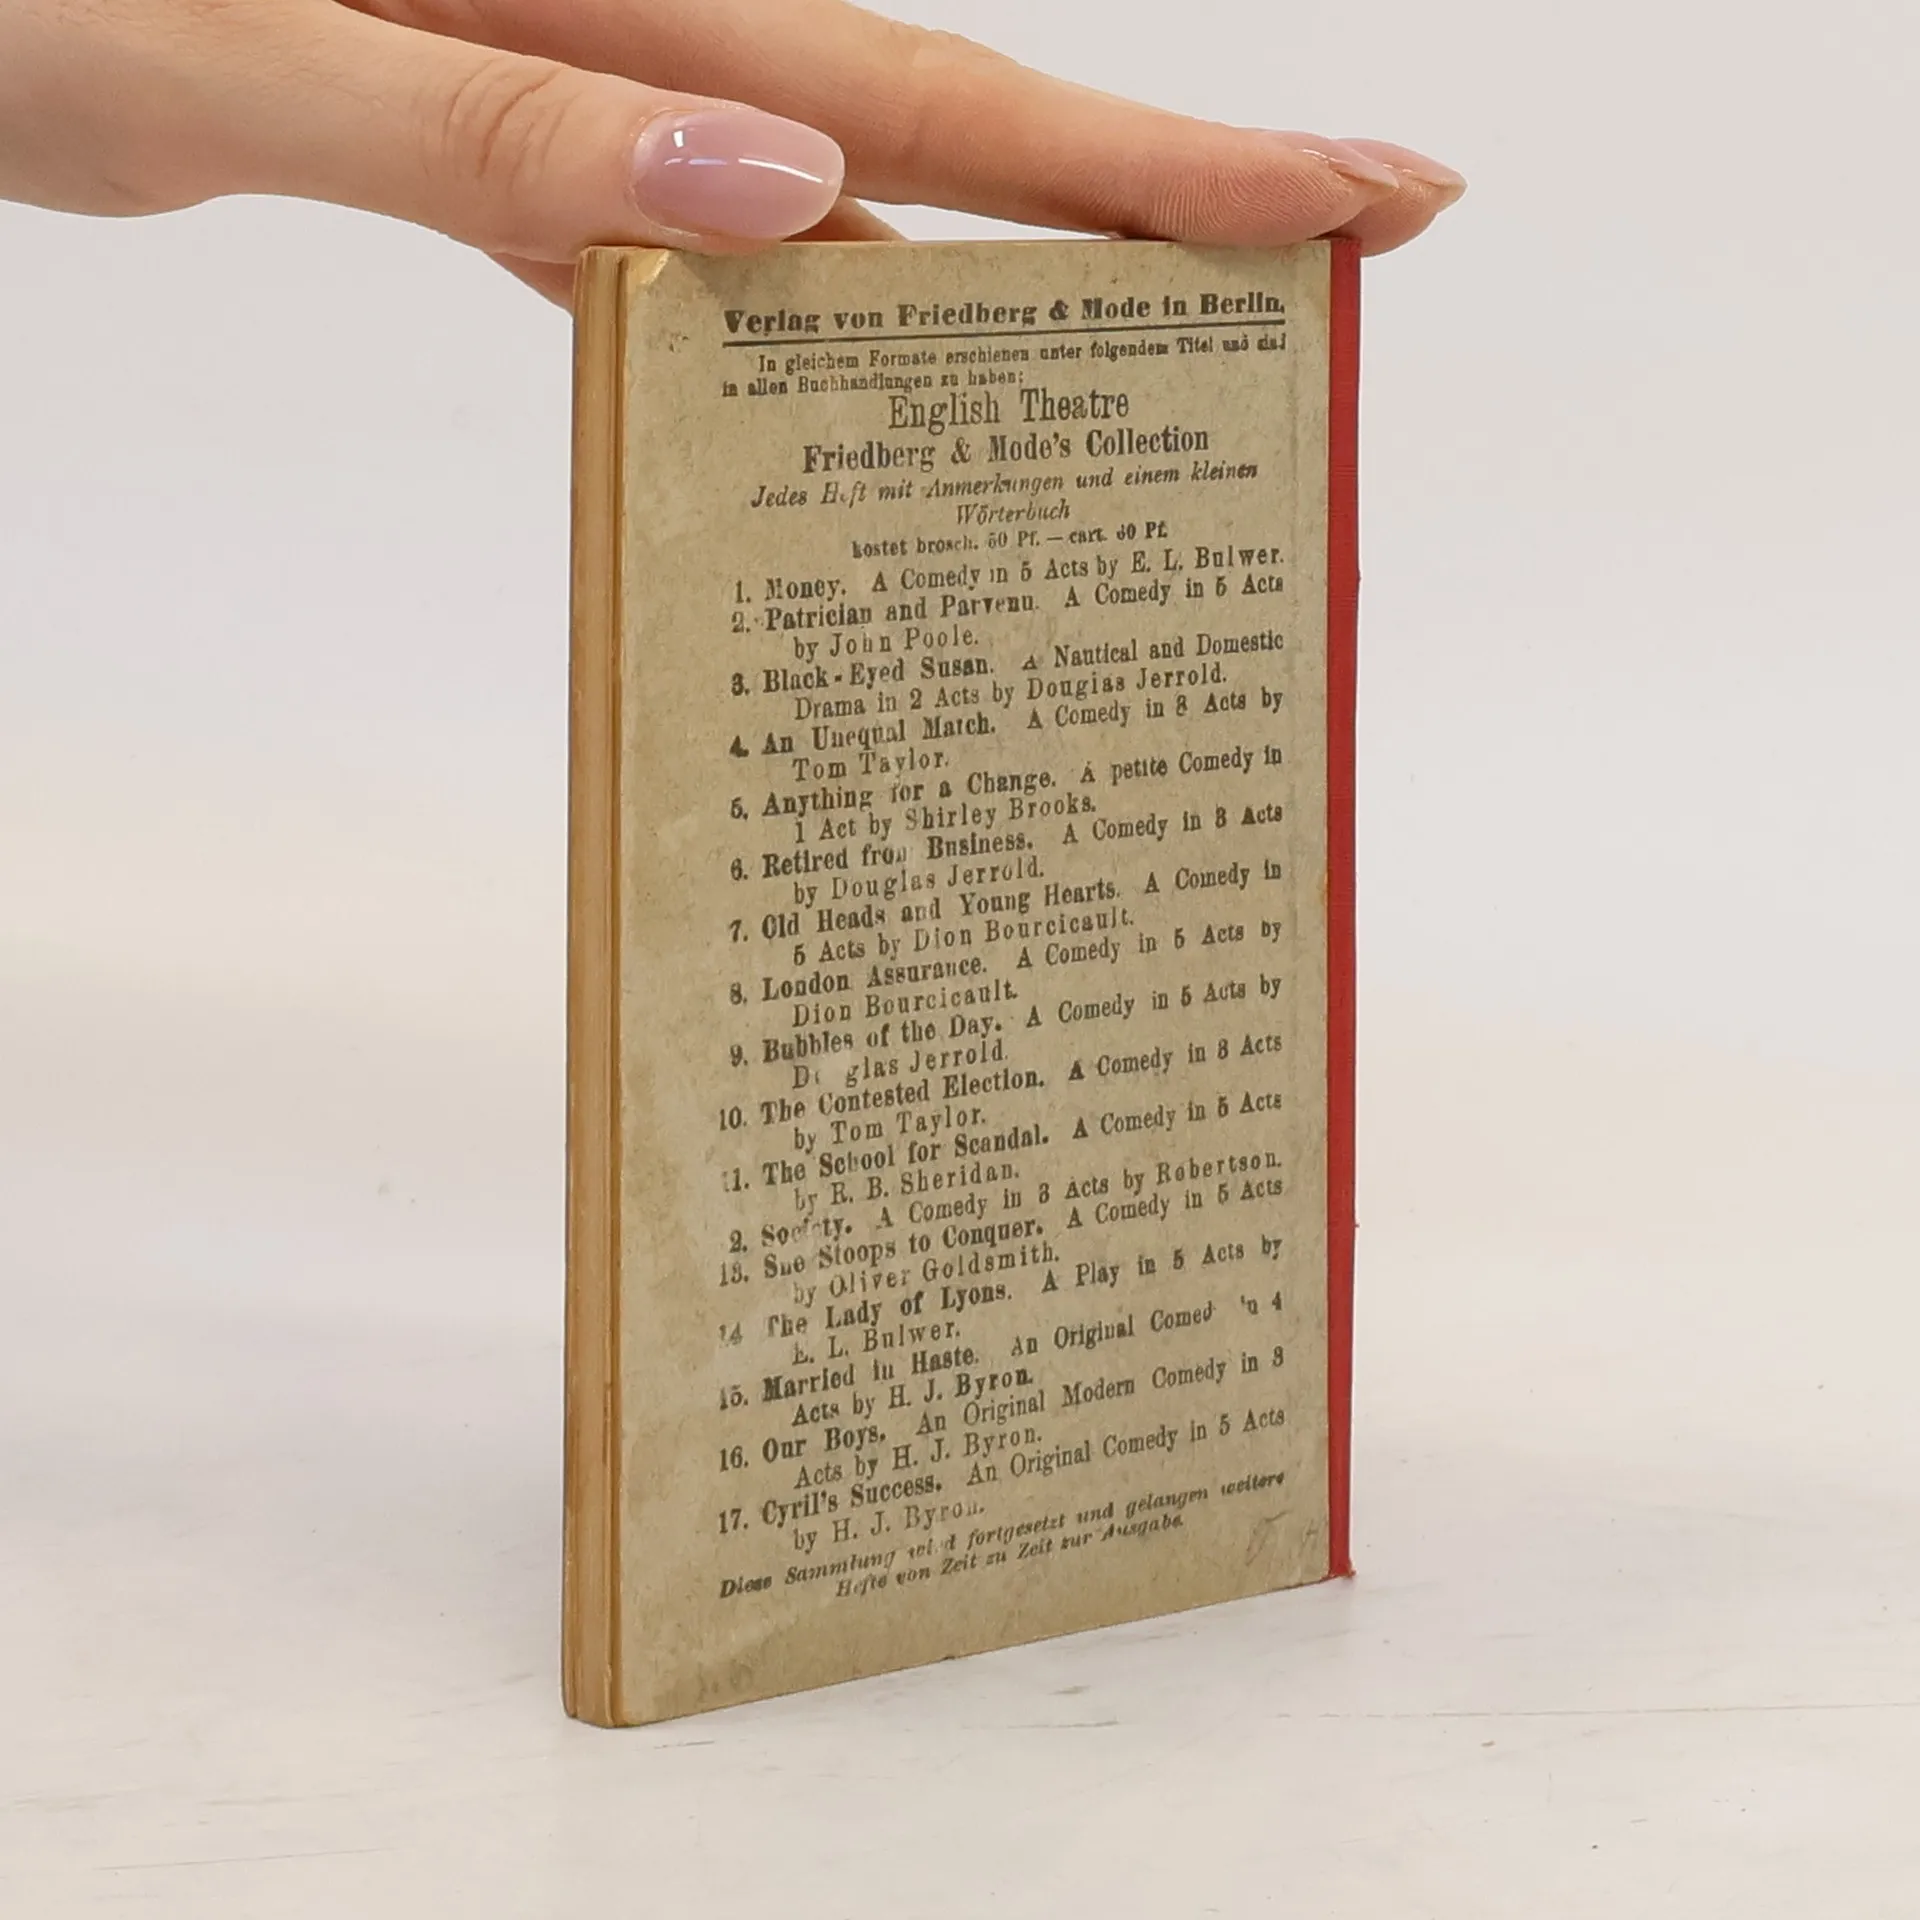 Verlag von Friedberg & Mode in Berlin.
In gleichem Formate erschienen unter folgendem Titel und sind
in allen Buchhandlungen zu haben:
English Theatre
Friedberg & Mode's Collection
Jedes Heft mit Anmerkungen und einem kleinen
Wörterbuch
kostet brosch. 50 Pf. — cart. 60 Pf.
1. Money. A Comedy in 5 Acts by E. L. Bulwer.
2. Patrician and Parvenu. A Comedy in 5 Acts
by John Poole.
3. Black-Eyed Susan. A Nautical and Domestic
Drama in 2 Acts by Douglas Jerrold.
4. An Unequal Match. A Comedy in 3 Acts by
Tom Taylor.
5. Anything for a Change. A petite Comedy in
1 Act by Shirley Brooks.
6. Retired from Business. A Comedy in 3 Acts
by Douglas Jerrold.
7. Old Heads and Young Hearts. A Comedy in
5 Acts by Dion Bourcicault.
8. London Assurance. A Comedy in 5 Acts by
Dion Bourcicault.
9. Bubbles of the Day. A Comedy in 5 Acts by
Douglas Jerrold.
10. The Contested Election. A Comedy in 3 Acts
by Tom Taylor.
11. The School for Scandal. A Comedy in 5 Acts
by R. B. Sheridan.
2. Society. A Comedy in 3 Acts by Robertson.
13. She Stoops to Conquer. A Comedy in 5 Acts
by Oliver Goldsmith.
14 The Lady of Lyons. A Play in 5 Acts by
E. L. Bulwer.
15. Married in Haste. An Original Comedy in 4
Acts by H. J. Byron.
16. Our Boys. An Original Modern Comedy in 3
Acts by H. J. Byron.
17. Cyril's Success. An Original Comedy in 5 Acts
by H. J. Byron.
Diese Sammlung wird fortgesetzt und gelangen weitere
Hefte von Zeit zu Zeit zur Ausgabe.